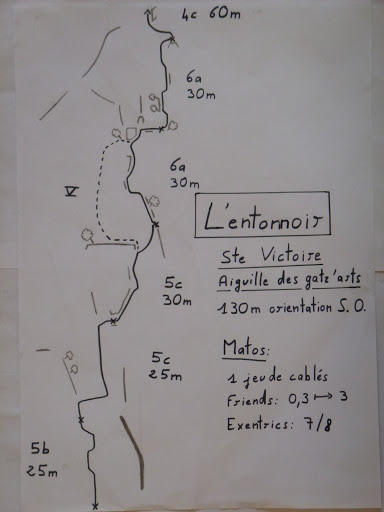 4c 60m
6a
30m
6a
30m
V
L'entonnoir
Ste Victoire
Aiguille des gatz'arts
130m orientation S.O.
5c
30m
Matos:
5c
25m
1 jeu de cablés
Friends: 0,3 ↦ 3
Exentrics: 7/8
5b
25m